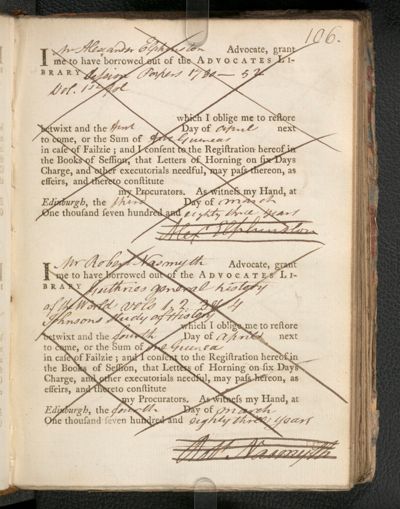 106.
I Mr Alexander Elphinston Advocate, grant
me to have borrowed out of the ADVOCATES LI-
BRARY Session Papers 1780 — 82
Vol. 1st
which I oblige me to restore
betwixt and the third Day of April next
to come, or the Sum of Guineas
in case of Failzie; and I consent to the Registration hereof in
the Books of Session, that Letters of Horning on six Days
Charge, and other executorials needful, may pass thereon, as
effeirs, and thereto constitute
my Procurators. As witness my Hand, at
Edinburgh, the third Day of march
One thousand seven hundred and eighty three years
Alexr Elphinston
I Mr Robert Nasmyth Advocate, grant
me to have borrowed out of the ADVOCATES LI-
BRARY Guthries general history
of the World vols 1. 2. 3 & 4
Johnsons Study of History
which I oblige me to restore
betwixt and the fourth Day of April next
to come, or the Sum of one Guinea
in case of Failzie; and I consent to the Registration hereof in
the Books of Session, that Letters of Horning on six Days
Charge, and other executorials needful, may pass hereon, as
effeirs, and thereto constitute
my Procurators. As witness my Hand, at
Edinburgh, the fourth Day of march
One thousand seven hundred and eighty three years
Robt Nasmyth